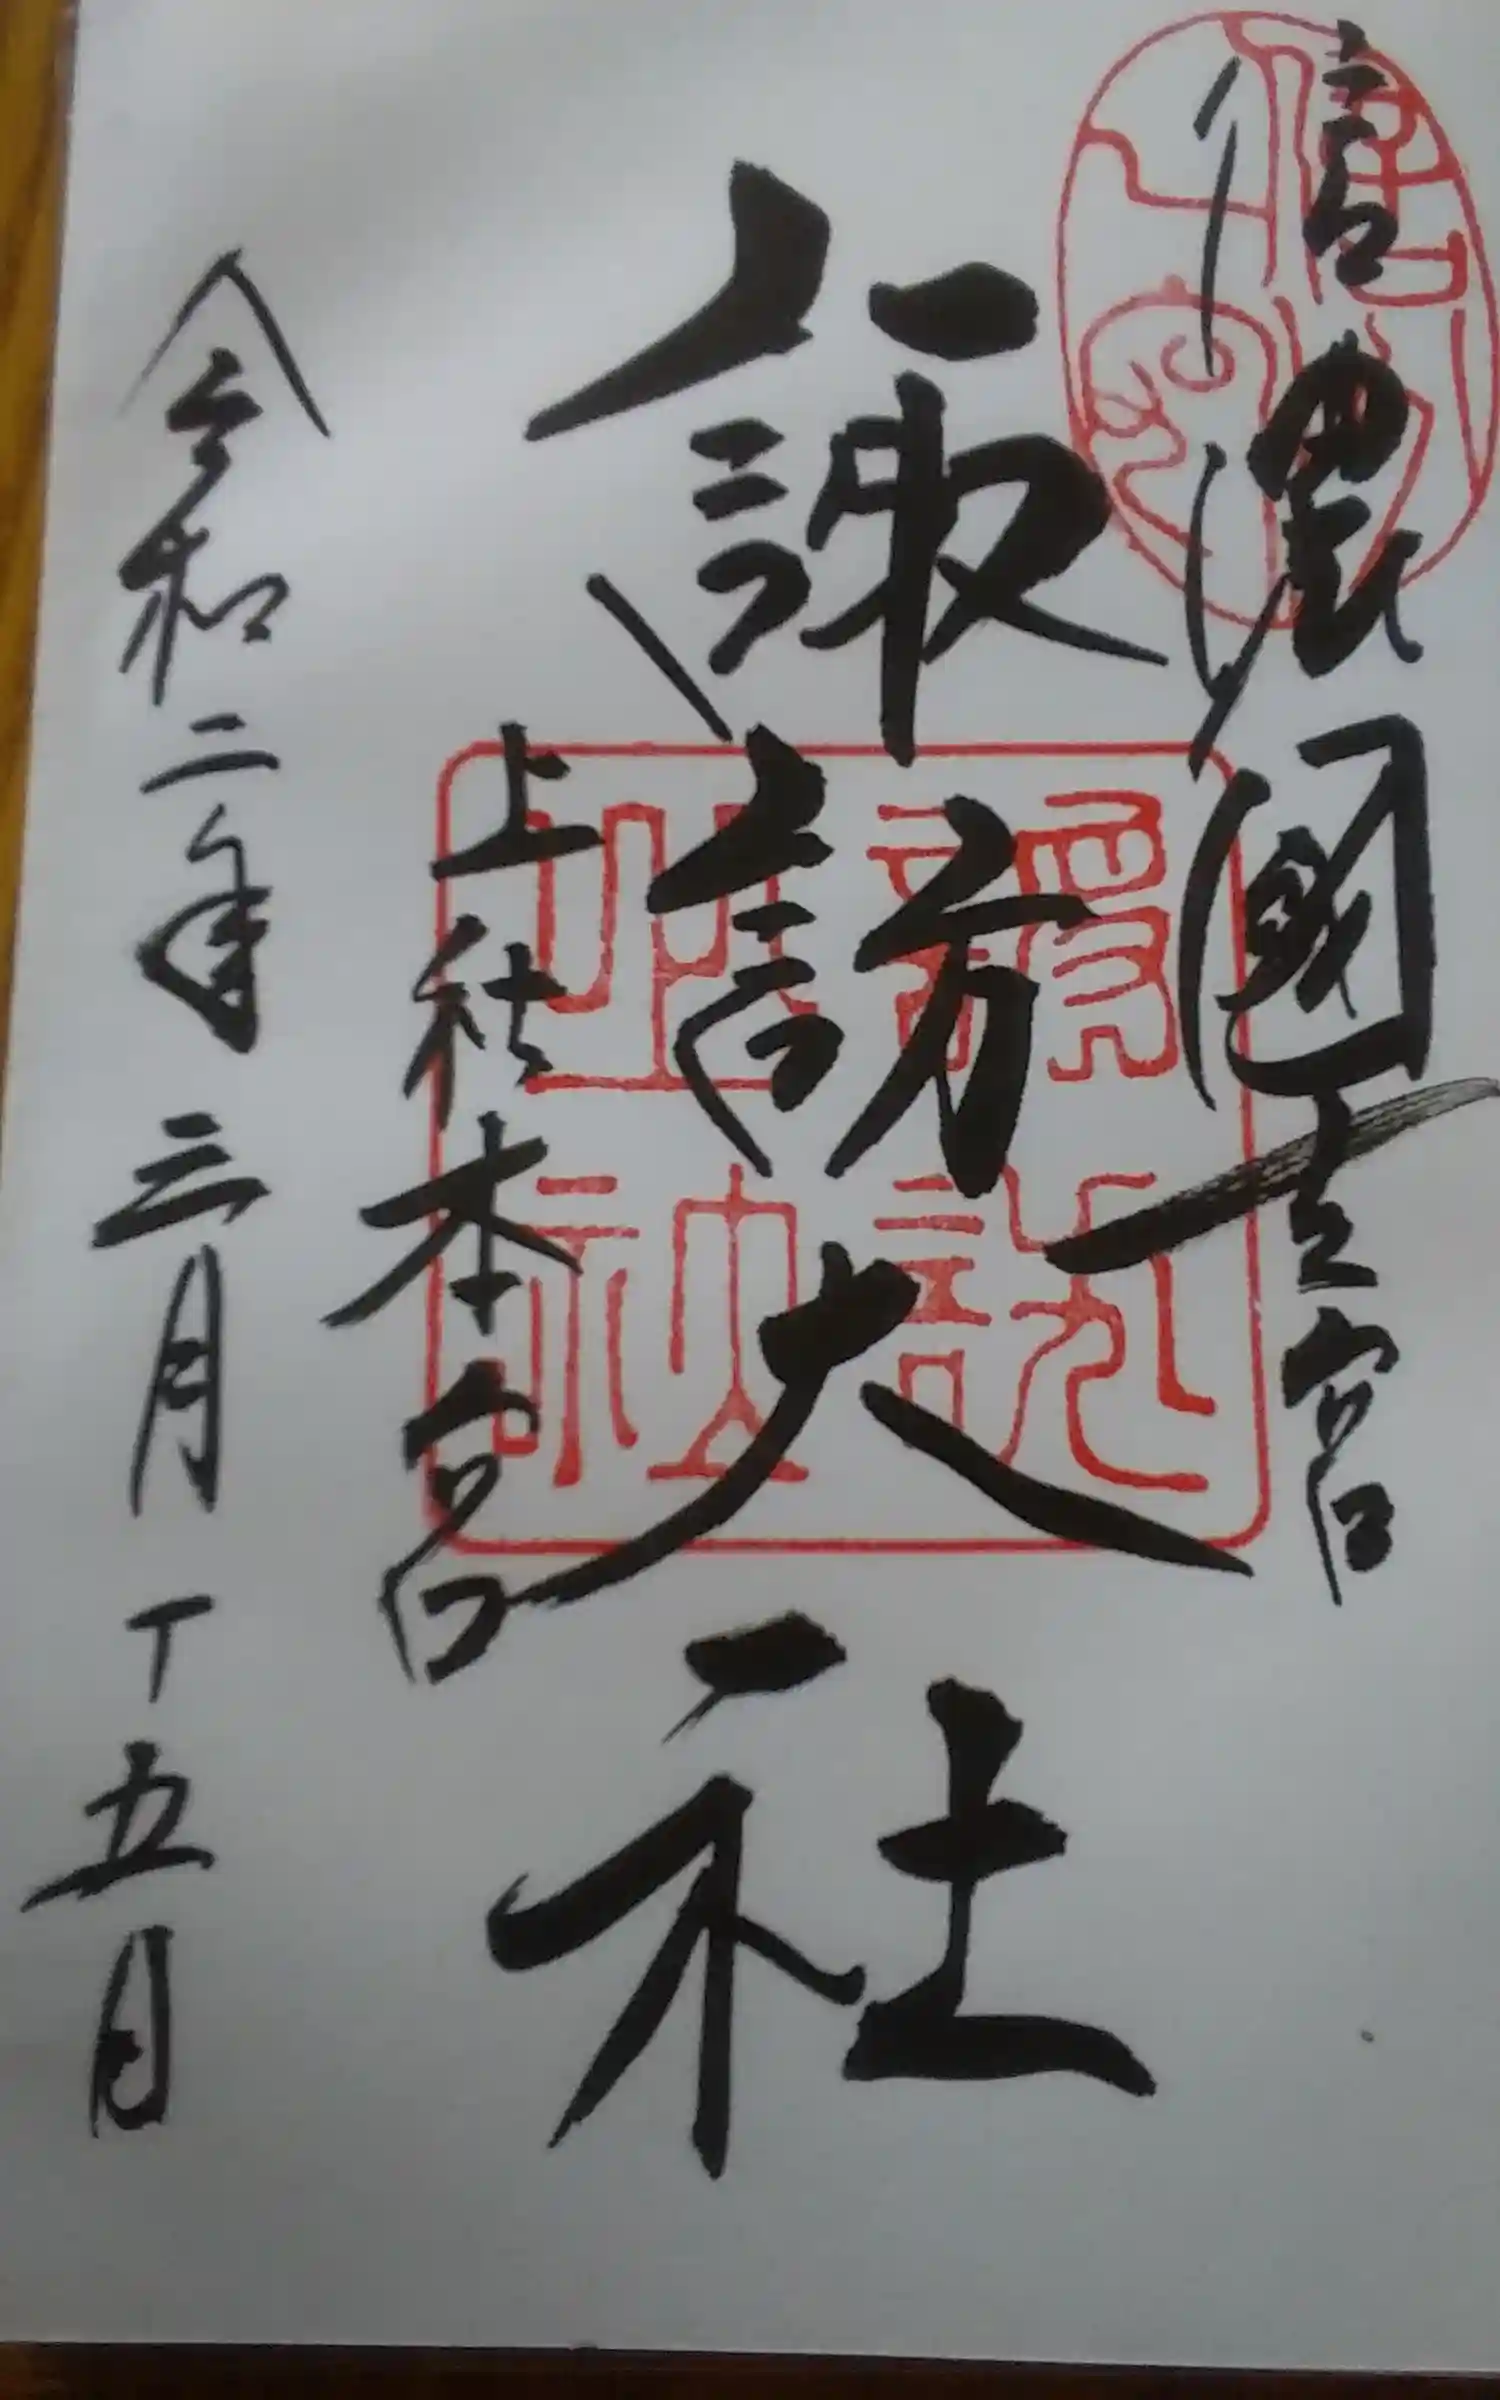 信濃國一之宮
諏訪大社
上社本宮
令和二年三月十五日